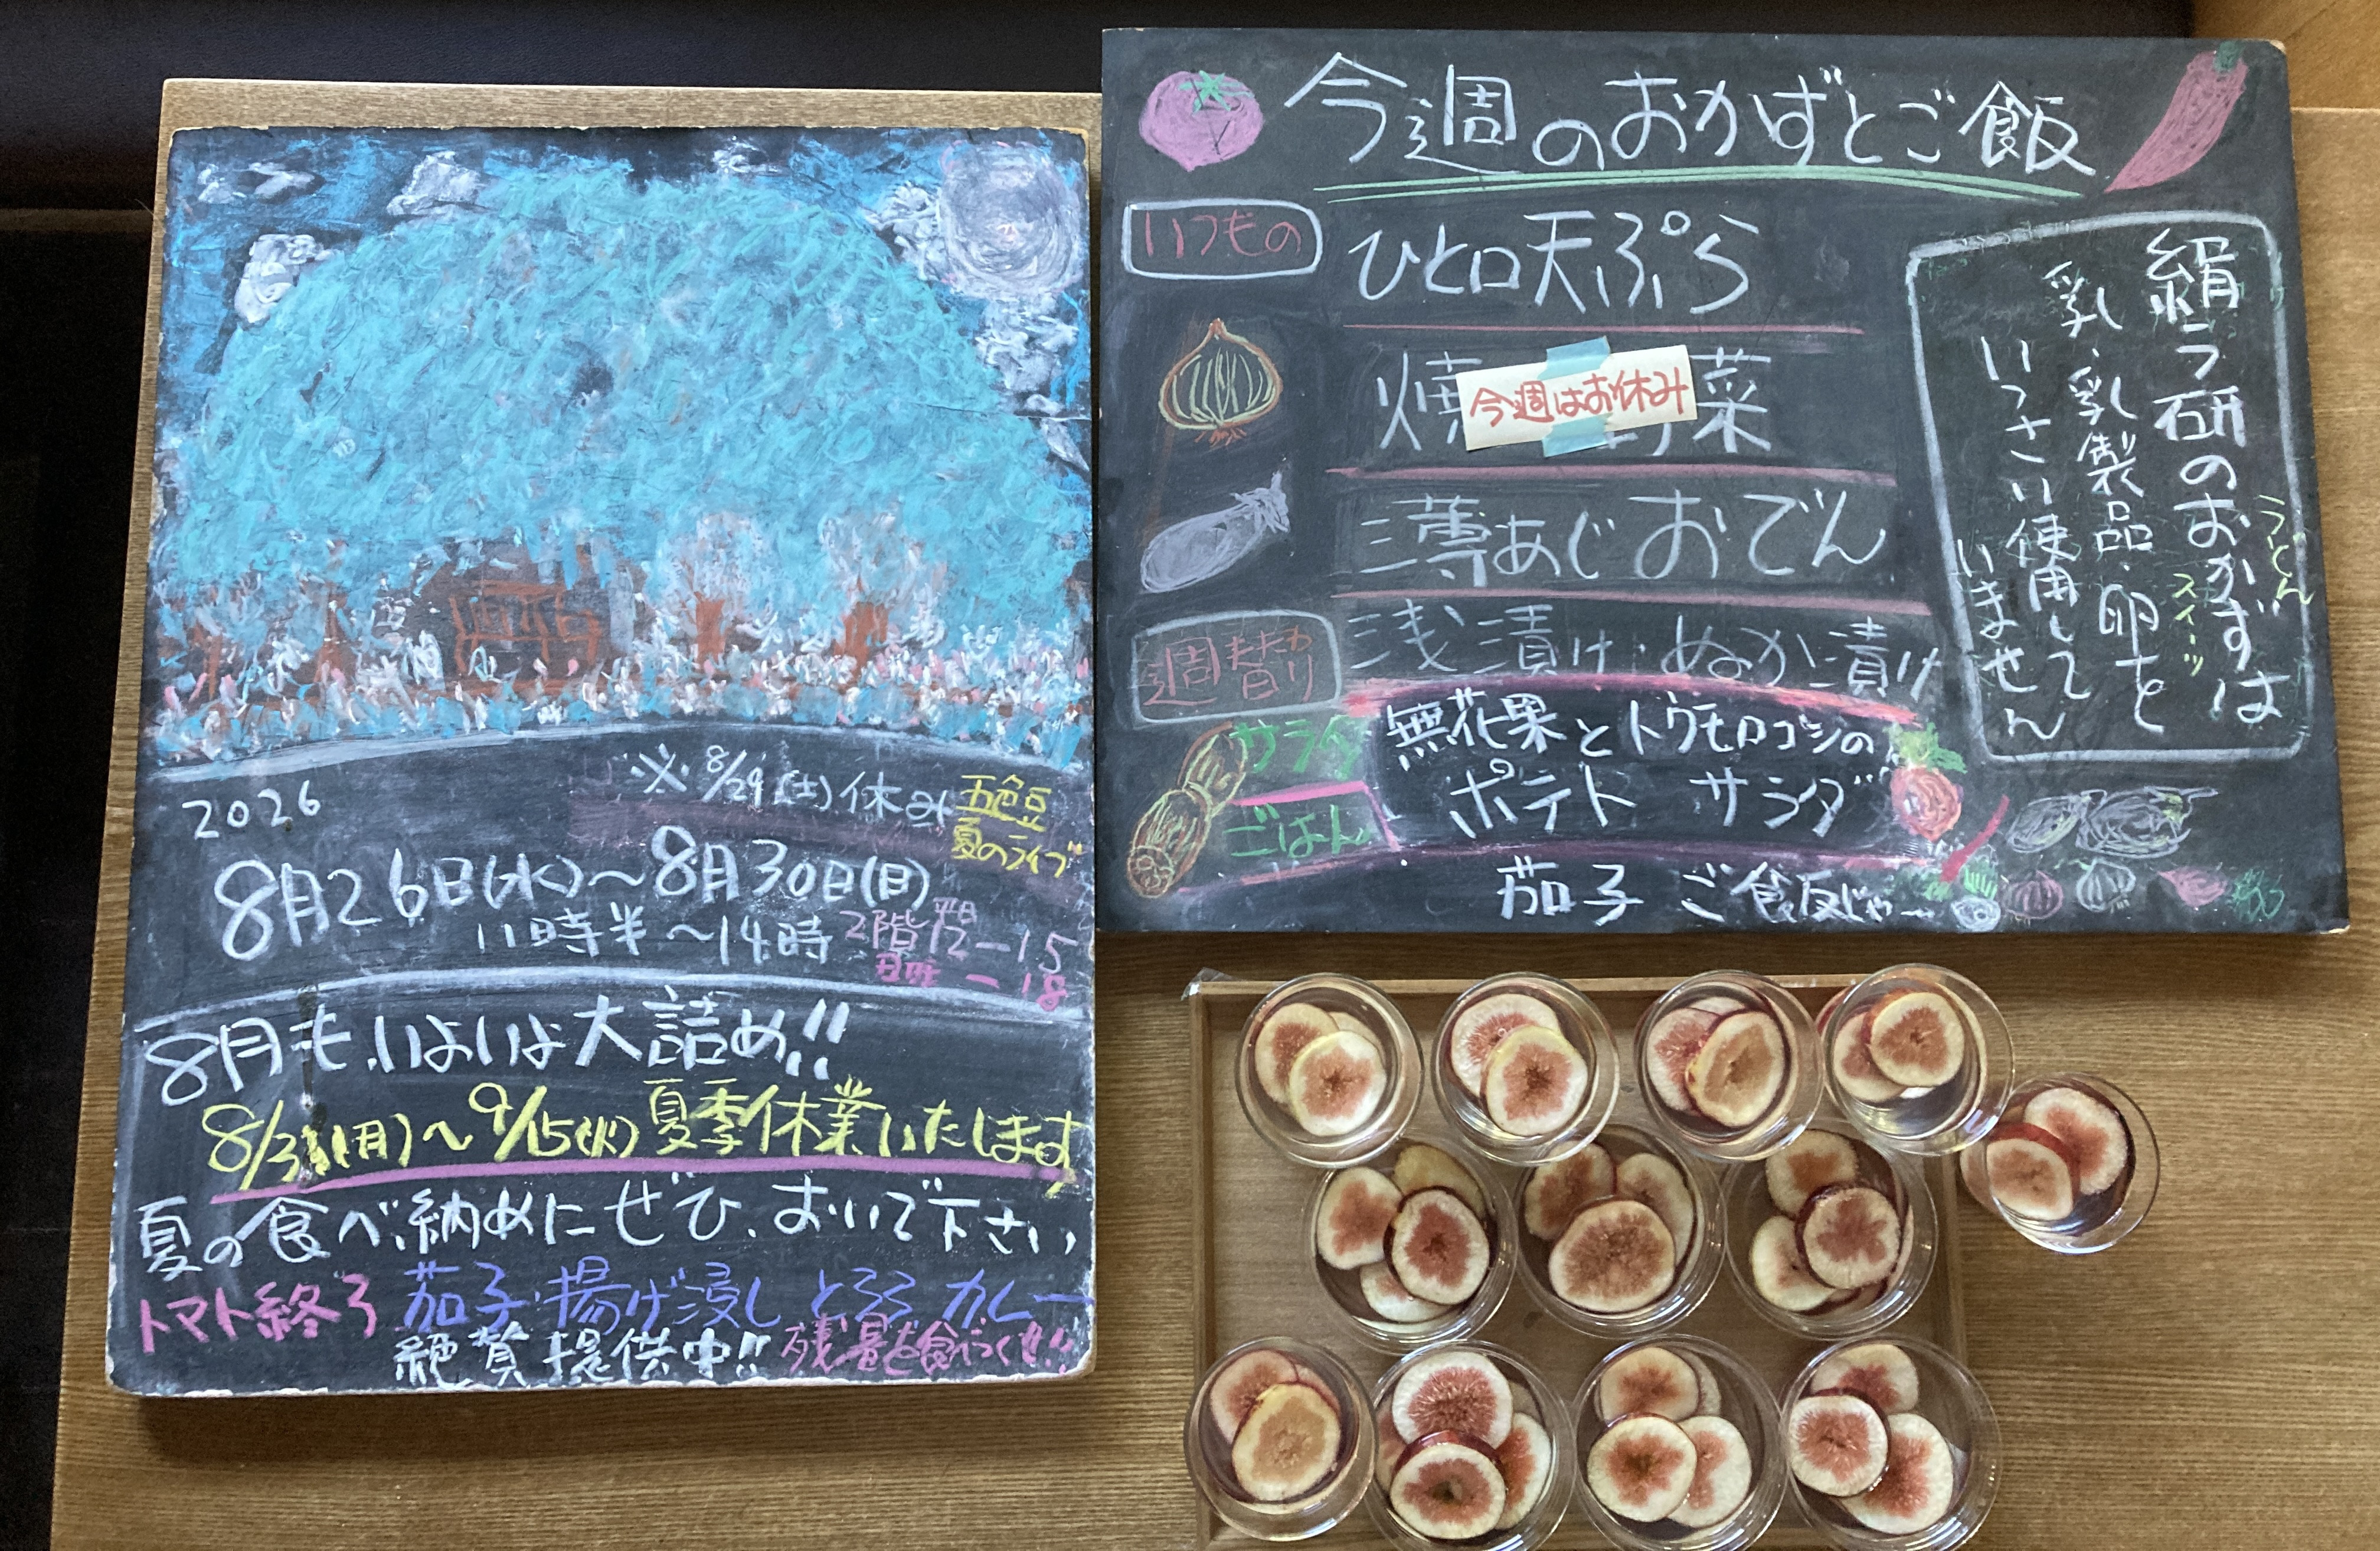 2026
※8/29(土)休み
五色豆
夏のライブ
8月26日(水)～8月30日(日)
11時半～14時
2階 平日12-15
日曜 -18
8月も、いよいよ大詰め!!
8/31(月)～9/15(火)夏季休業いたします
夏の食べ納めにぜひ、おいで下さい
トマト終了 茄子・揚げ浸し とろろ カレー
絶賛提供中!! 残暑を食べつくせ!!
今週のおかずとご飯
いつもの
ひと口天ぷら
焼 菜
今週はお休み
薄あじおでん
週替り
浅漬け・ぬか漬け
サラダ
無花果とトウモロコシの
ポテトサラダ
ごはん
茄子ご飯じゃー
絹ラ研のおかずは
うどん
スイーツ
乳、乳製品、卵を
いっさい使用して
いません